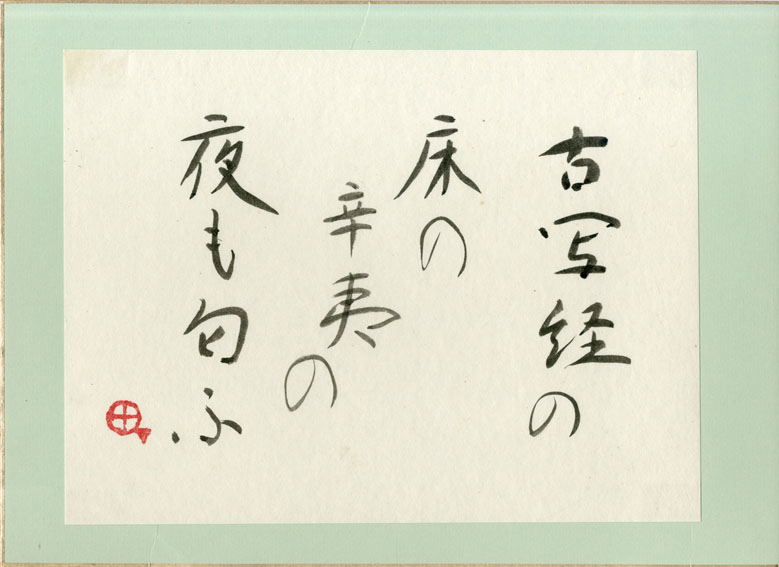 古写経の
床の
辛夷の
夜も匂ふ
田